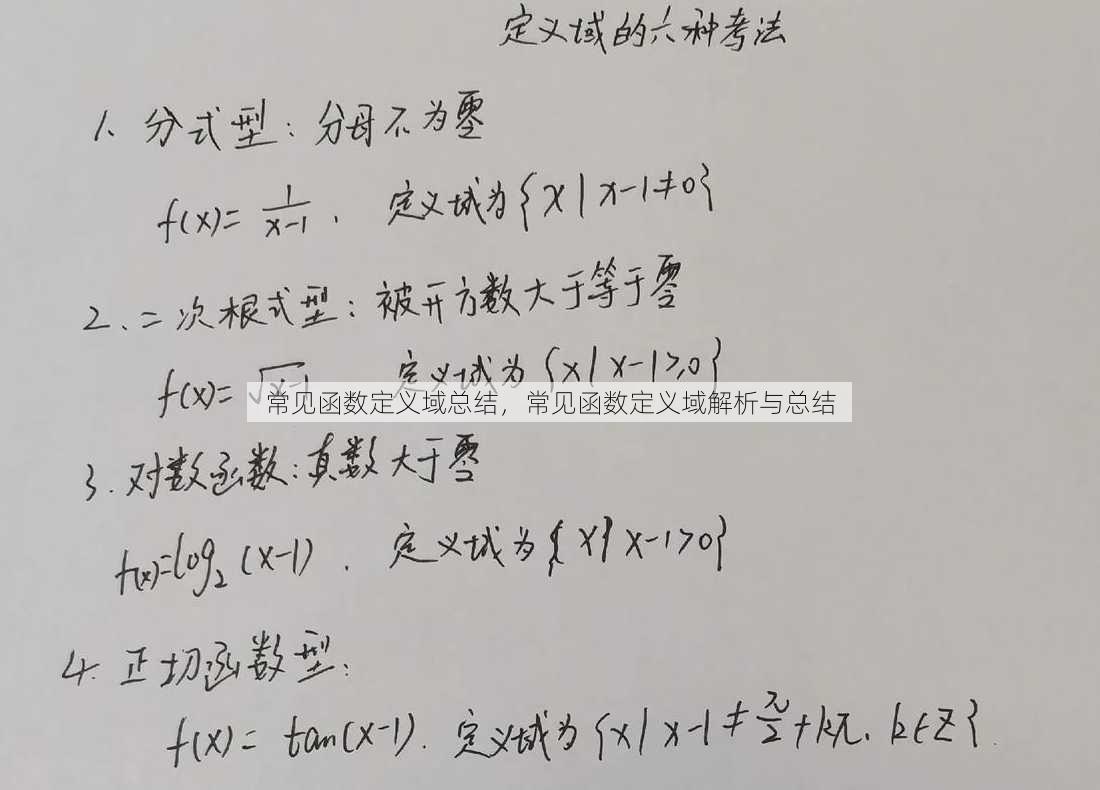 定义域的六种考法
1、分式型：分母不为零
f(x)=1/(x-1)，定义域为{x|x-1≠0}
2、二次根式型：被开方数大于等于零
f(x)=√(x-1) 定义域为{x|x-1≥0}
常见函数定义域总结，常见函数定义域解析与总结
3.对数函数：真数大于零
f(x)=log₂(x-1)．定义域为{x|x-1>0}
4.正切函数型：
f(x)=tan(x-1)．定义域为{x|x-1≠π/2+kπ，k∈Z}．